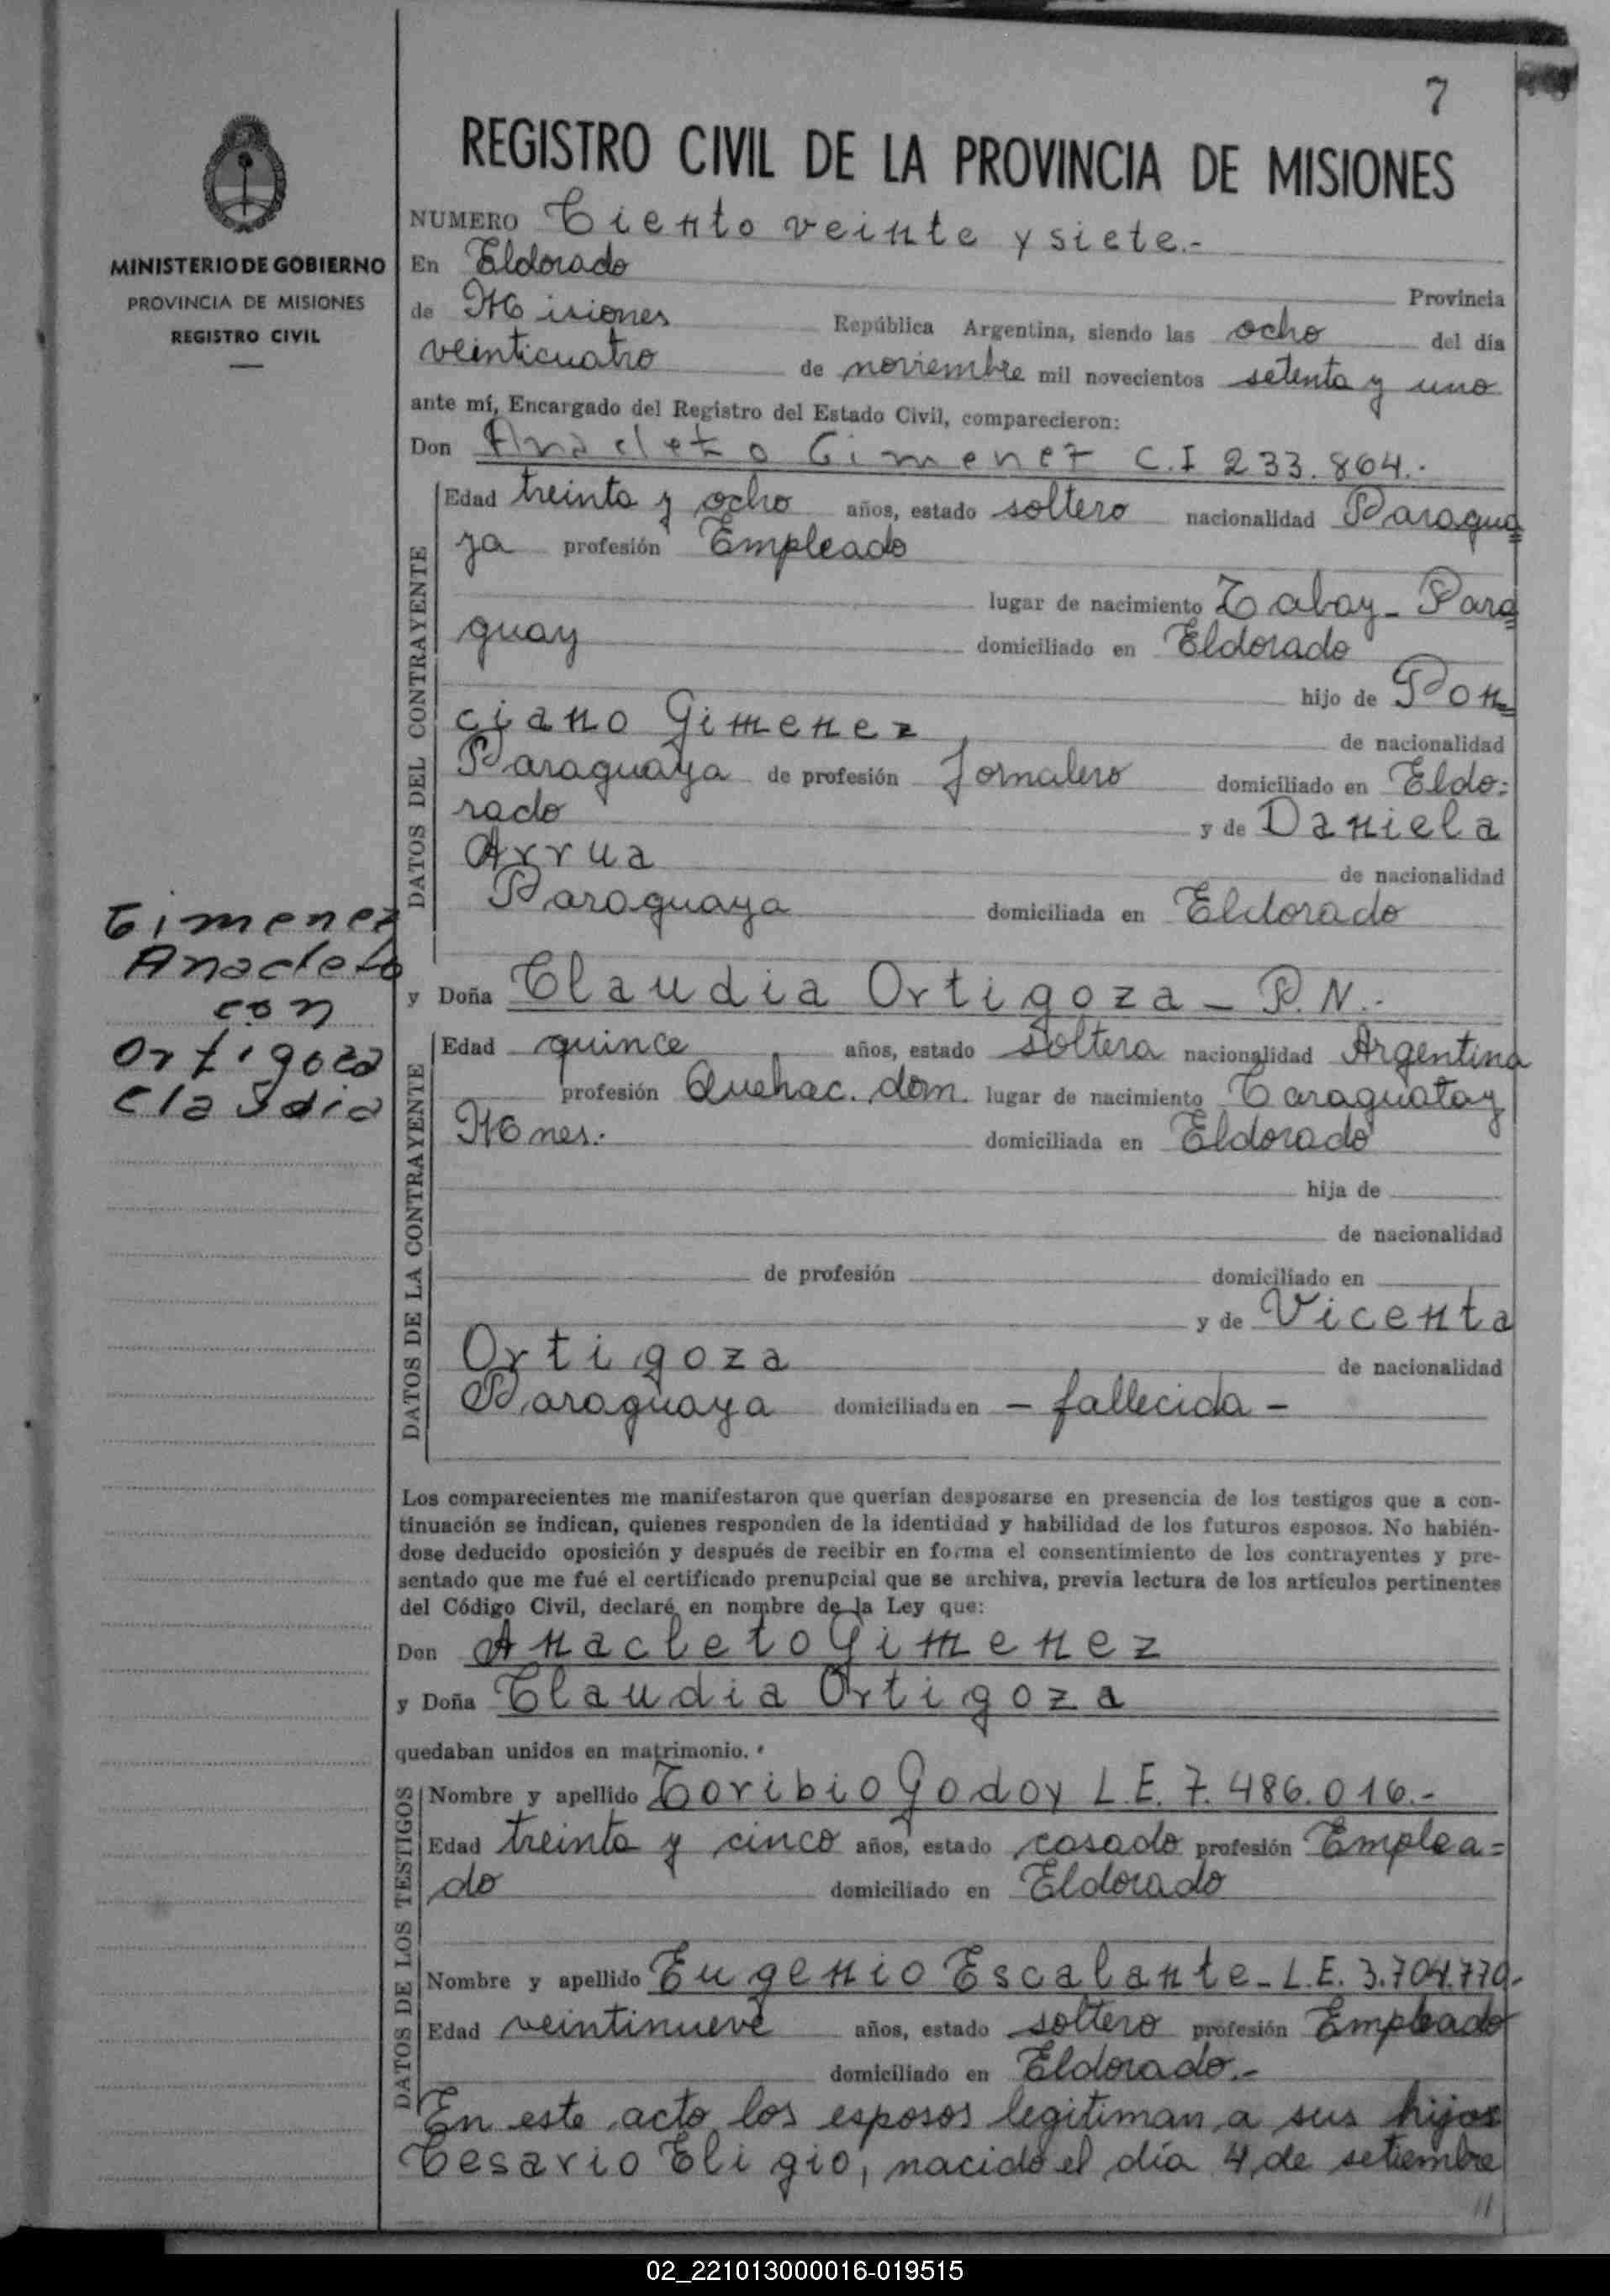 7
REGISTRO CIVIL DE LA PROVINCIA DE MISIONES
MINISTERIO DE GOBIERNO
PROVINCIA DE MISIONES
REGISTRO CIVIL
NUMERO Ciento veinte y siete.-
En Eldorado Provincia
de Misiones República Argentina, siendo las ocho del día
veinticuatro de noviembre mil novecientos setenta y uno
ante mí, Encargado del Registro del Estado Civil, comparecieron:
Don Anacleto Gimenez C.I 233.864.-
DATOS DEL CONTRAYENTE
Edad treinta y ocho años, estado soltero nacionalidad Paragua
ya profesión Empleado
lugar de nacimiento Tabay - Para
guay domiciliado en Eldorado
hijo de Pon
ciano Gimenez de nacionalidad
Paraguaya de profesión Jornalero domiciliado en Eldo=
rado y de Daniela
Arrua de nacionalidad
Paraguaya domiciliada en Eldorado
Gimenez
Anacleto
con
Ortigoza
Claudia
y Doña Claudia Ortigoza - P.N.-
DATOS DE LA CONTRAYENTE
Edad quince años, estado soltera nacionalidad Argentina
profesión Quehac. dom. lugar de nacimiento Caraguatay
Mnes.- domiciliada en Eldorado
hija de
de nacionalidad
de profesión domiciliado en
y de Vicenta
Ortigoza de nacionalidad
Paraguaya domiciliada en - fallecida -
Los comparecientes me manifestaron que querían desposarse en presencia de los testigos que a con-
tinuación se indican, quienes responden de la identidad y habilidad de los futuros esposos. No habién-
dose deducido oposición y después de recibir en forma el consentimiento de los contrayentes y pre-
sentado que me fué el certificado prenupcial que se archiva, previa lectura de los artículos pertinentes
del Código Civil, declaré en nombre de la Ley que:
Don Anacleto Gimenez
y Doña Claudia Ortigoza
quedaban unidos en matrimonio.
DATOS DE LOS TESTIGOS
Nombre y apellido Toribio Godoy L.E. 7.486.016.-
Edad treinta y cinco años, estado casado profesión Emplea=
do domiciliado en Eldorado
Nombre y apellido Eugenio Escalante - L.E. 3.704.770.-
Edad veintinueve años, estado soltero profesión Empleado
domiciliado en Eldorado.-
En este acto los esposos legitiman a sus hijos
Cesario Eligio, nacido el día 4 de setiembre
//
02_221013000016-019515